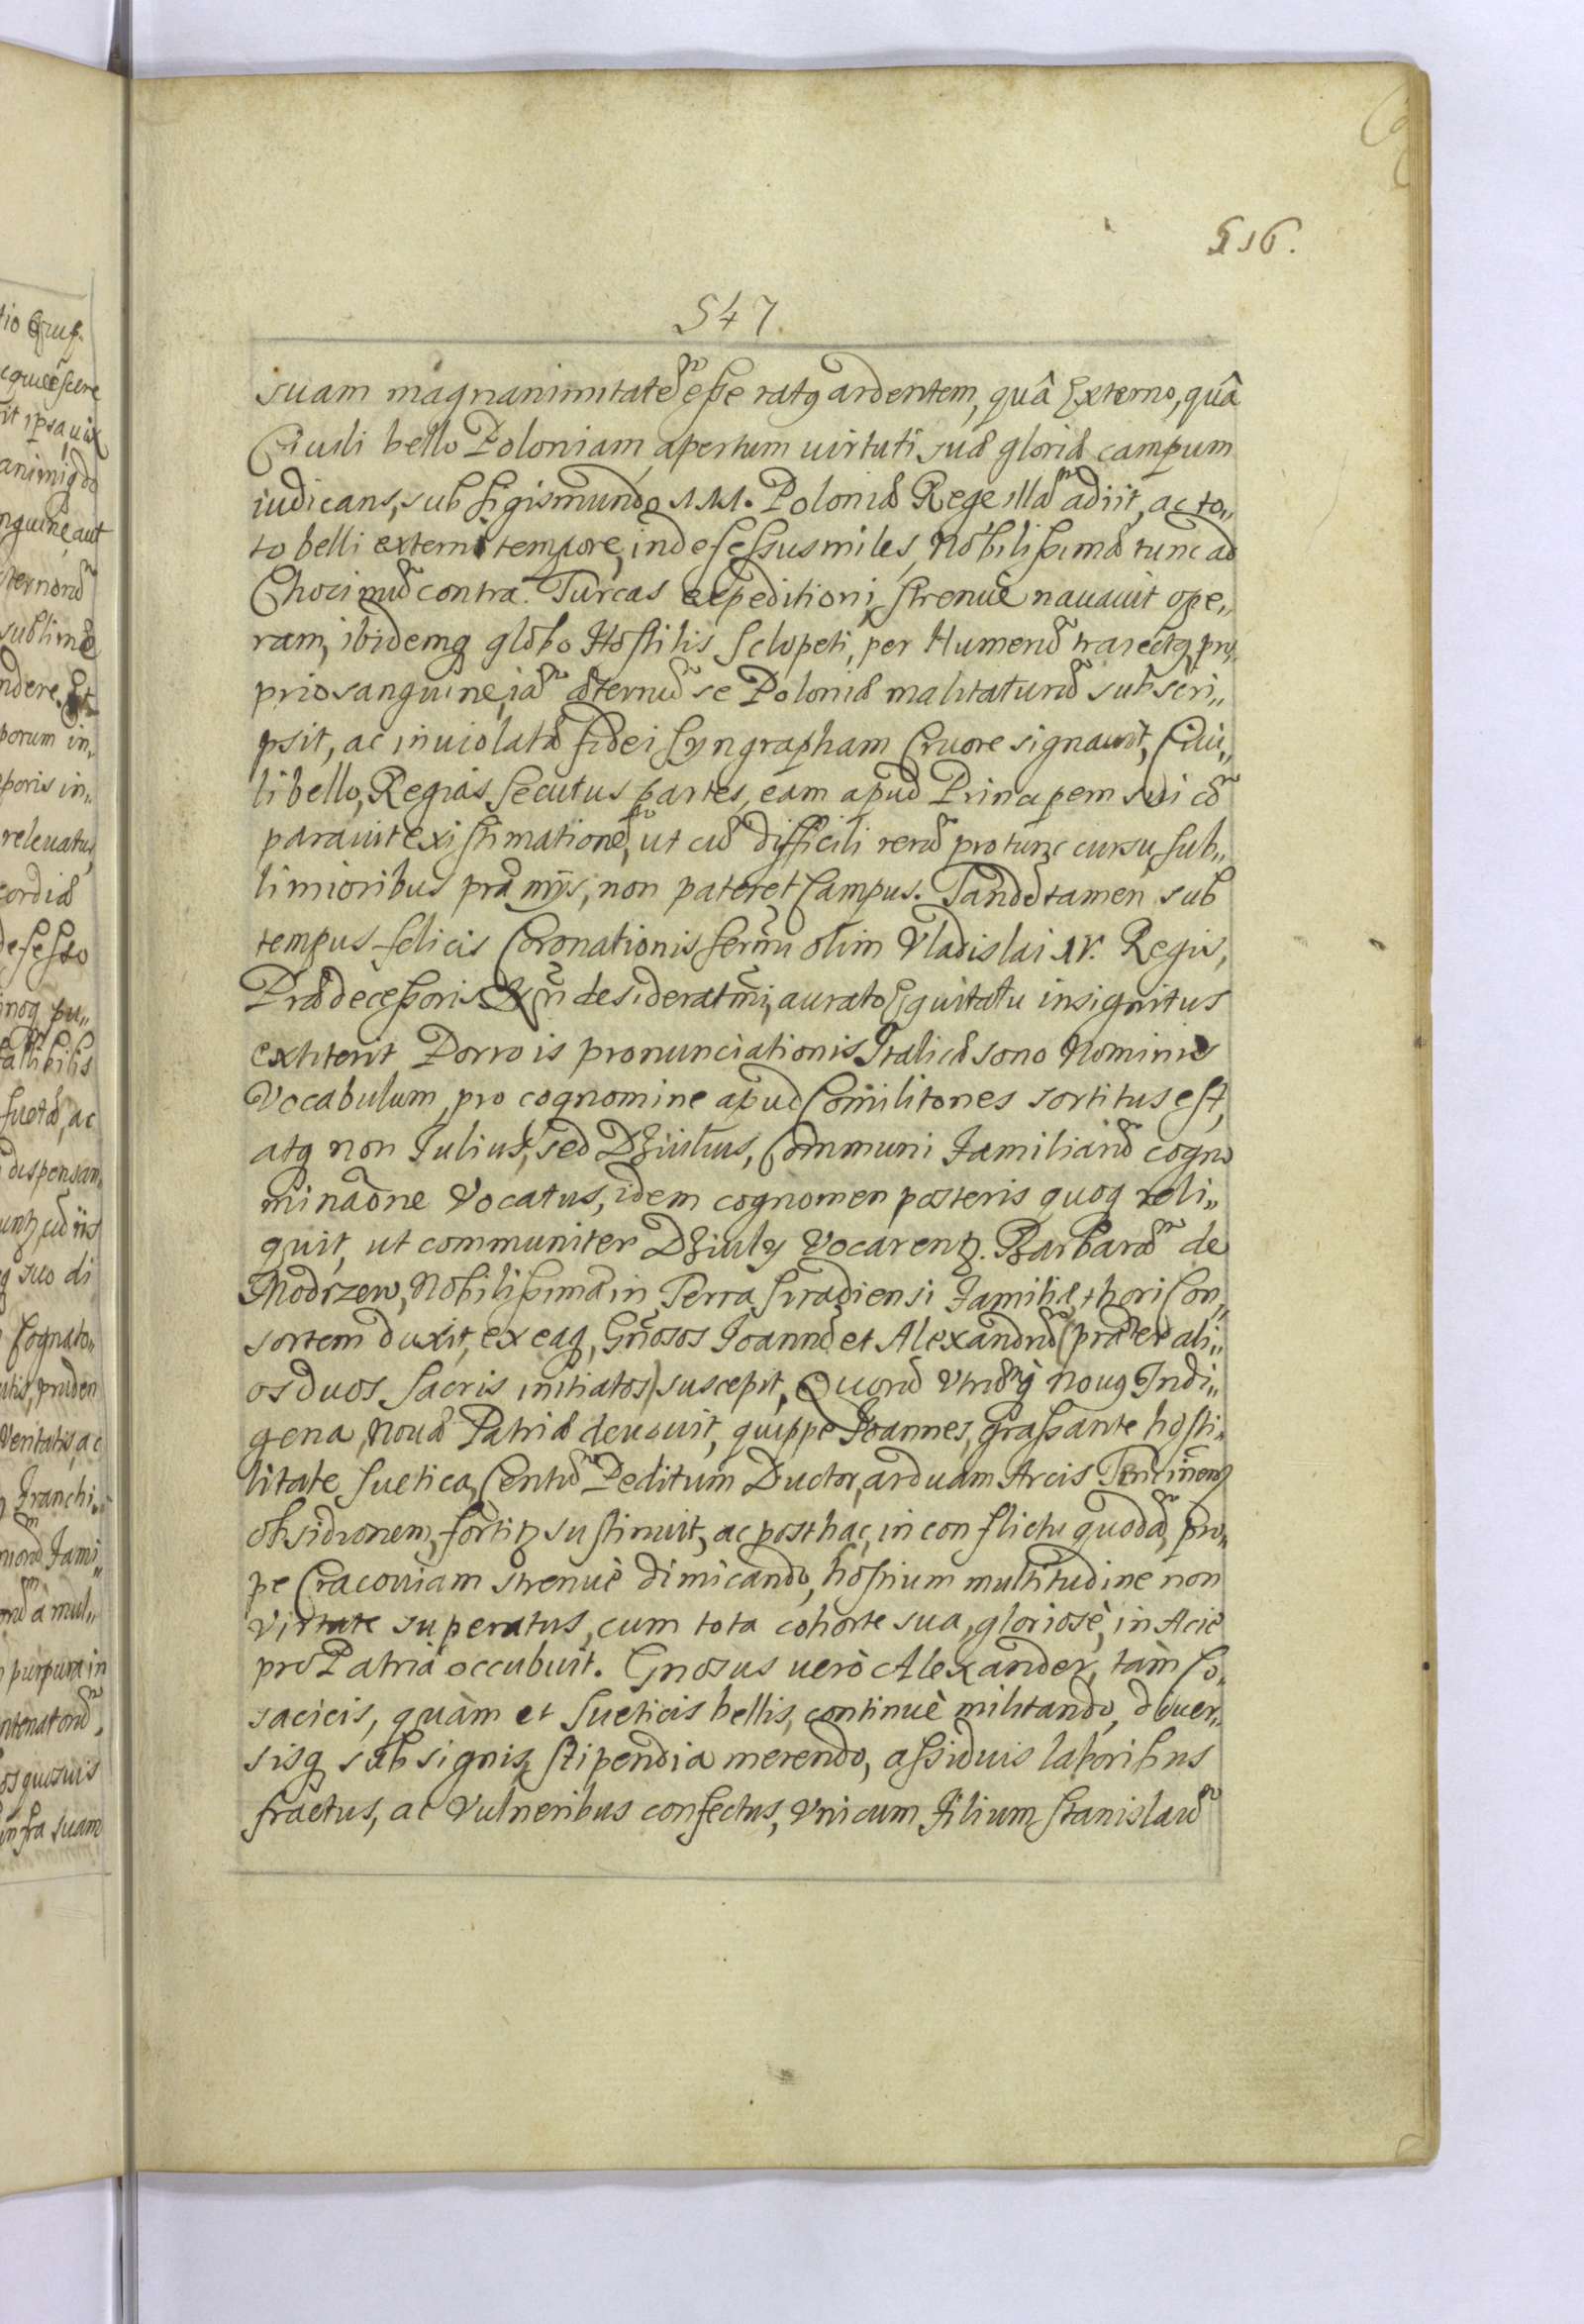 516.
547.
suam magnanimitatē esse ratꝰ ardentem, quâ Externo, quâ
Ciuili bello Poloniam, apertum uirtuti suæ gloriæ campum
iudicans, sub Sigismundo III. Poloniæ Rege illā adiit, ac to„
to belli externi tempore, indefessus miles, Nobilissimæ tunc ad
Chocimū contra Turcas expeditioni, strenuè nauauit ope„
ram, ibidemq globo Hostilis Sclopeti, per Humerū traiectꝰ, pro„
prio sanguine, iā æternū se Poloniæ militaturū subscri„
psit, ac inuiolatæ fidei Syngrapham Cruore signauit, Ciui„
li bello, Regias secutus partes, eam apud Principem sui cō
parauit existimationē, ut cū difficili rerū pro tunc cursu sub„
limioribus præmijs, non pateret Campus. Tandē tamen sub
tempus felicis Coronationis Sermi olim Vladislai IV. Regis,
Prædecessoris Nri desideratmi, aurato Equitatu insignitus
extiterit Porro is pronunciationis Italicæ sono Nominis
Vocabulum, pro cognomine apud Comilitones sortitus est,
atq non Iulius, sed Dziulius, Communi Familiarū cogno
minaōne Vocatus, idem cognomen posteris quoq reli„
quit, ut communiter Dziuly Vocarentꝛ. Barbarā de
Modrzew, Nobilissima in Terra Siradiensi Familia, thori Con„
sortem duxit, ex eaq, Gnosos Joannē et Alexandrū (præter ali„
os duos Sacris initiatos) suscepit, Quorū Vtrūq nouꝰ Indi„
gena, Nouæ Patriæ deuouit, quippe Joannes, Grassante hosti„
litate Suetica, Centū Peditum Ductor, arduam Arcis Tencinen
obsidionem, fortiꝛ sustinuit, ac post hac, in conflictu quodā, pro„
pe Cracouiam strenuè dimicando, hostium multitudine non
virtute superatus, cum tota cohorte sua, gloriosè, in Acie
pro Patria occubuit. Gnosus uerò Alexander, tàm Co„
sacicis, quàm et Sueticis bellis, continuè militando, diuer„
sisq sub signis, stipendia merendo, assiduis laboribus
fractus, ac Vulneribus confectus, Vnicum Filium, Stanislaū